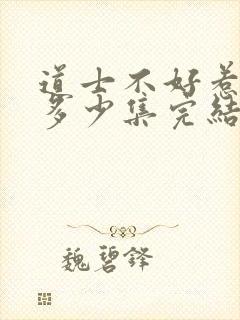 道士不好惹
多少集完结
魏碧锋